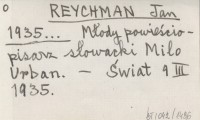 o
REYCHMAN Jan
1935... Młody powieścio-
pisarz słowacki Milo
Urban. – Świat 9 III
1935.